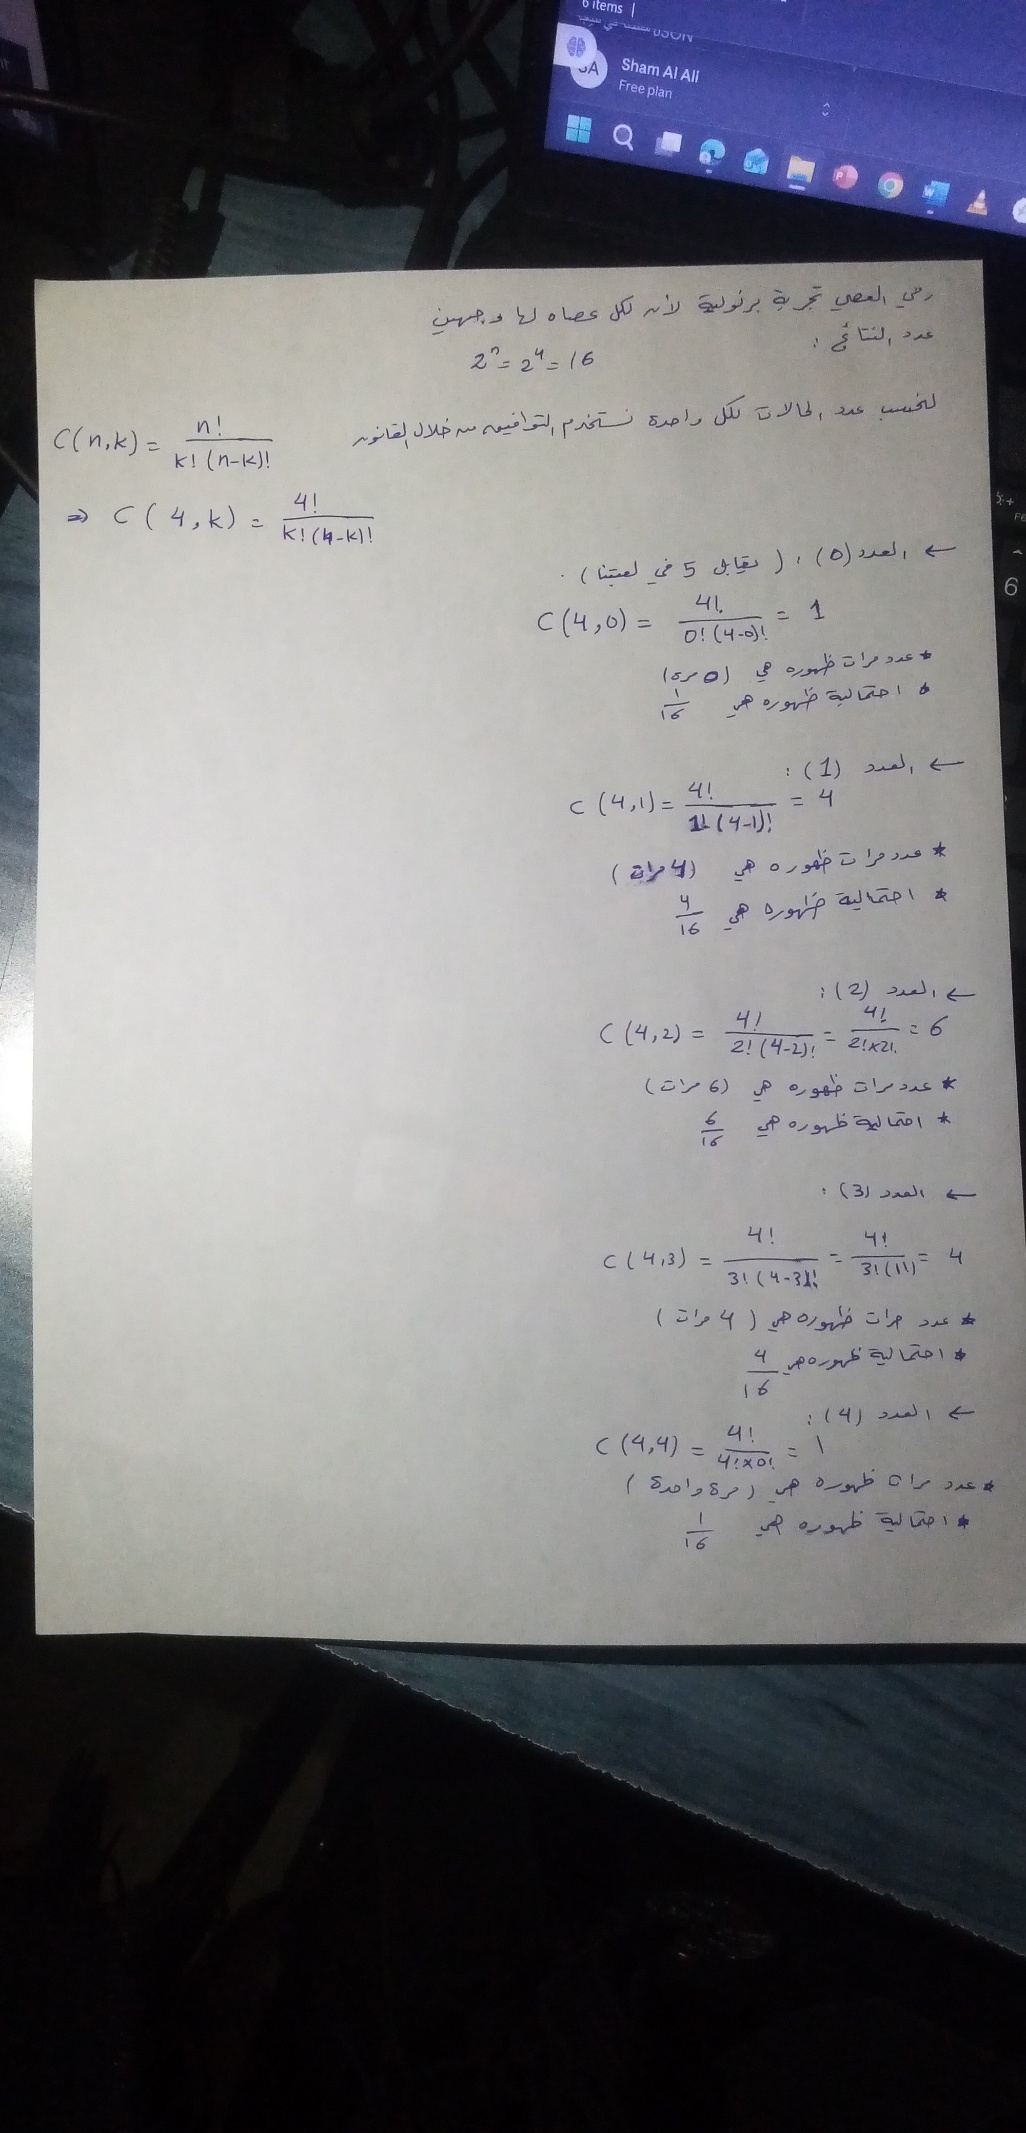 6 items
JSON
SA
Sham Al Ali
Free plan
رمي العصي تجربة برنولية لأن لكل عصاه لها وجهين
عدد النتائج :
2^n = 2^4 = 16
لنحسب عدد الحالات لكل واحدة نستخدم التوافيق من خلال القانون
C(n,k) = n! / k! (n-k)!
⇒ C(4,k) = 4! / k! (4-k)!
← العدد (0) : (يقابل 5 في لعبتنا) .
C(4,0) = 4! / 0! (4-0)! = 1
* عدد مرات ظهوره هي (0 مرة)
* احتمالية ظهوره هي 1/16
← العدد (1) :
C(4,1) = 4! / 1! (4-1)! = 4
* عدد مرات ظهوره هي (4 مرات)
* احتمالية ظهوره هي 4/16
← العدد (2) :
C(4,2) = 4! / 2! (4-2)! = 4! / 2!×2! = 6
* عدد مرات ظهوره هي (6 مرات)
* احتمالية ظهوره هي 6/16
← العدد (3) :
C(4,3) = 4! / 3! (4-3)! = 4! / 3! (1!) = 4
* عدد مرات ظهوره هي (4 مرات)
* احتمالية ظهوره هي 4/16
← العدد (4) :
C(4,4) = 4! / 4!×0! = 1
* عدد مرات ظهوره هي (مرة واحدة)
* احتمالية ظهوره هي 1/16
6